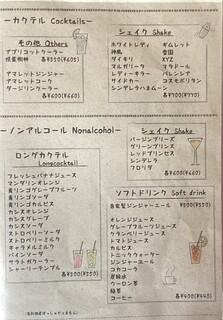 ーカクテル Cocktailsー
その他 Others
アプリコットクーラー
各¥550(¥605)
アマレットジンジャー
アマレットコーク
ダージリンクーラー
各¥600(¥660)
シェイク Shake
ホワイトレディ ギムレット
神風 雪国
ダイキリ XYZ
マルガリータ マタドール
レディーキラー バレンシア
サイドカー コスモポリタン
シンデレラハネムーン
各¥700(¥770)
ーノンアルコール Nonalcoholー
ロングカクテル
Longcocktail
フレッシュバナナジュース
マンゴリンオレンジ
青リンゴグレープフルーツ
青リンゴソーダ
青リンゴカルピス
カシスオレンジ
カシスグレープ
カシスソーダ
ストロベリーソーダ
ストロベリーミルク
キャラメルミルク
パインソーダ
サラトガクーラー
シャーリーテンプル
各¥500(¥550)
シェイク Shake
バージンブリーズ
グリーンブリーズ
レッドプリンセス
シンデレラ
フロリダ
各¥600(¥660)
ソフトドリンク Soft drink
自家製ジンジャーエール ¥500(¥550)
オレンジジュース
グレープフルーツジュース
クランベリージュース
トマトジュース
カルピス
トニックウォーター
ジンジャーエール
コカコーラ
炭酸水
ウーロン茶
緑茶
コーヒー
各¥400(¥440)